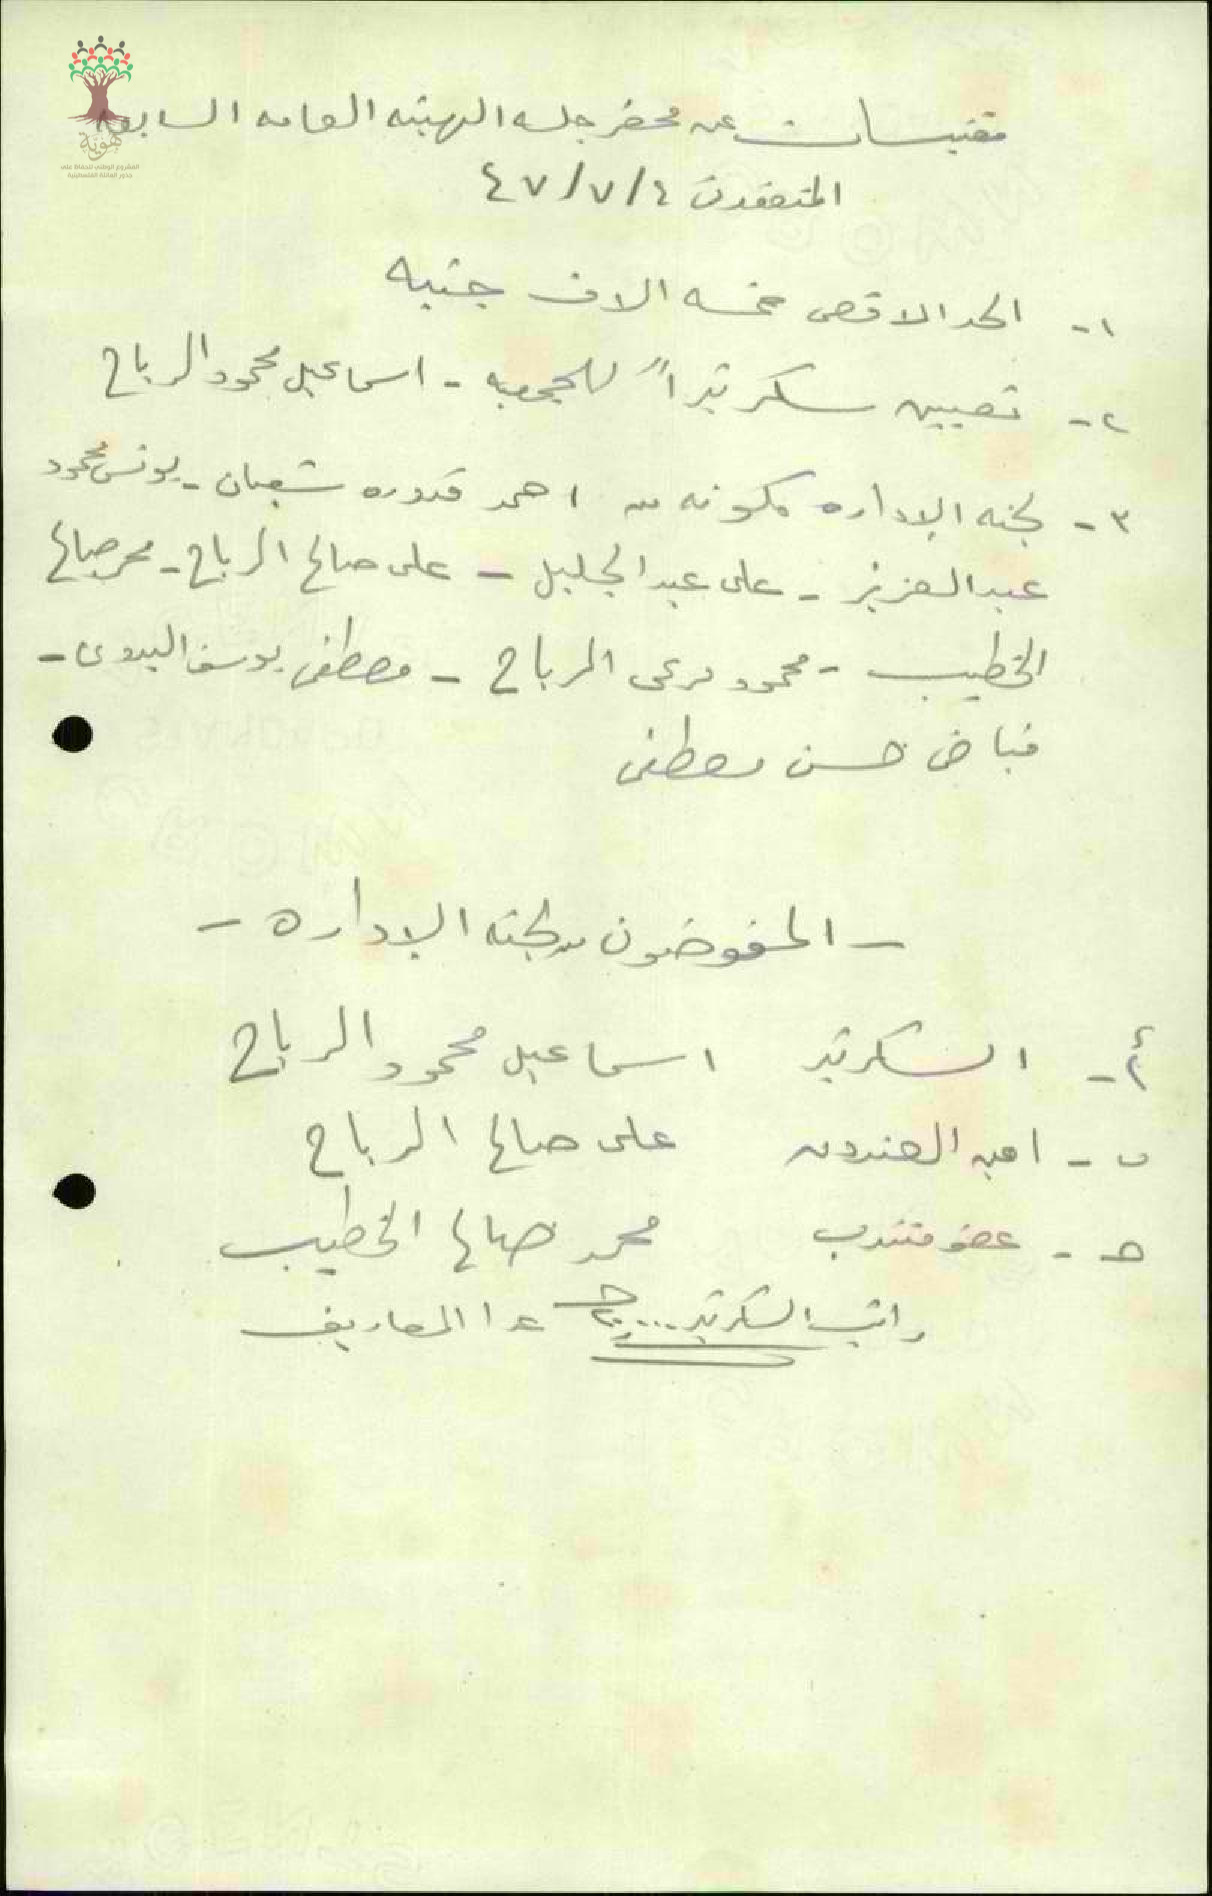 هوية
المشروع الوطني للحفاظ على
جذور العائلة الفلسطينية
مقتبسات عن محضر جلسه الهيئه العامه السابعه
المنعقدة ٤/٧/٤٧
١- الحد الاقصى خمسه الاف جنيه
٢- تعيين سكرتيراً للجمعيه - اسماعيل محمود الرباح
٣- لجنه الاداره مكونه من احمد قدوره شعبان - يونس محمود
عبد العزيز - على عبد الجليل - على صالح الرباح - محمد صالح
الخطيب - محمود مرعى الرباح - مصطفى يوسف البدوى -
فياض حسن مصطفى
- المفوضون من لجنه الاداره -
أ- السكرتير اسماعيل محمود الرباح
ب- امين الصندوق على صالح الرباح
ج- عضو منتدب محمد صالح الخطيب
راتب السكرتير عدا المصاريف